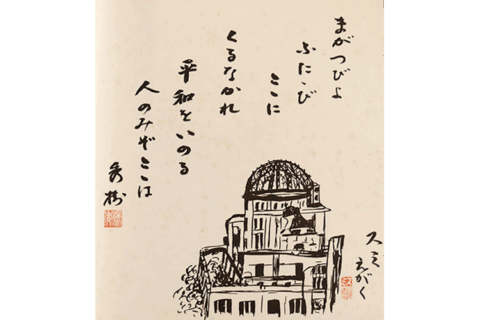 まがつびよ
ふたゝび
ここに
くるなかれ
平和をいのる
人のみぞここは
秀樹
スミ
えがく